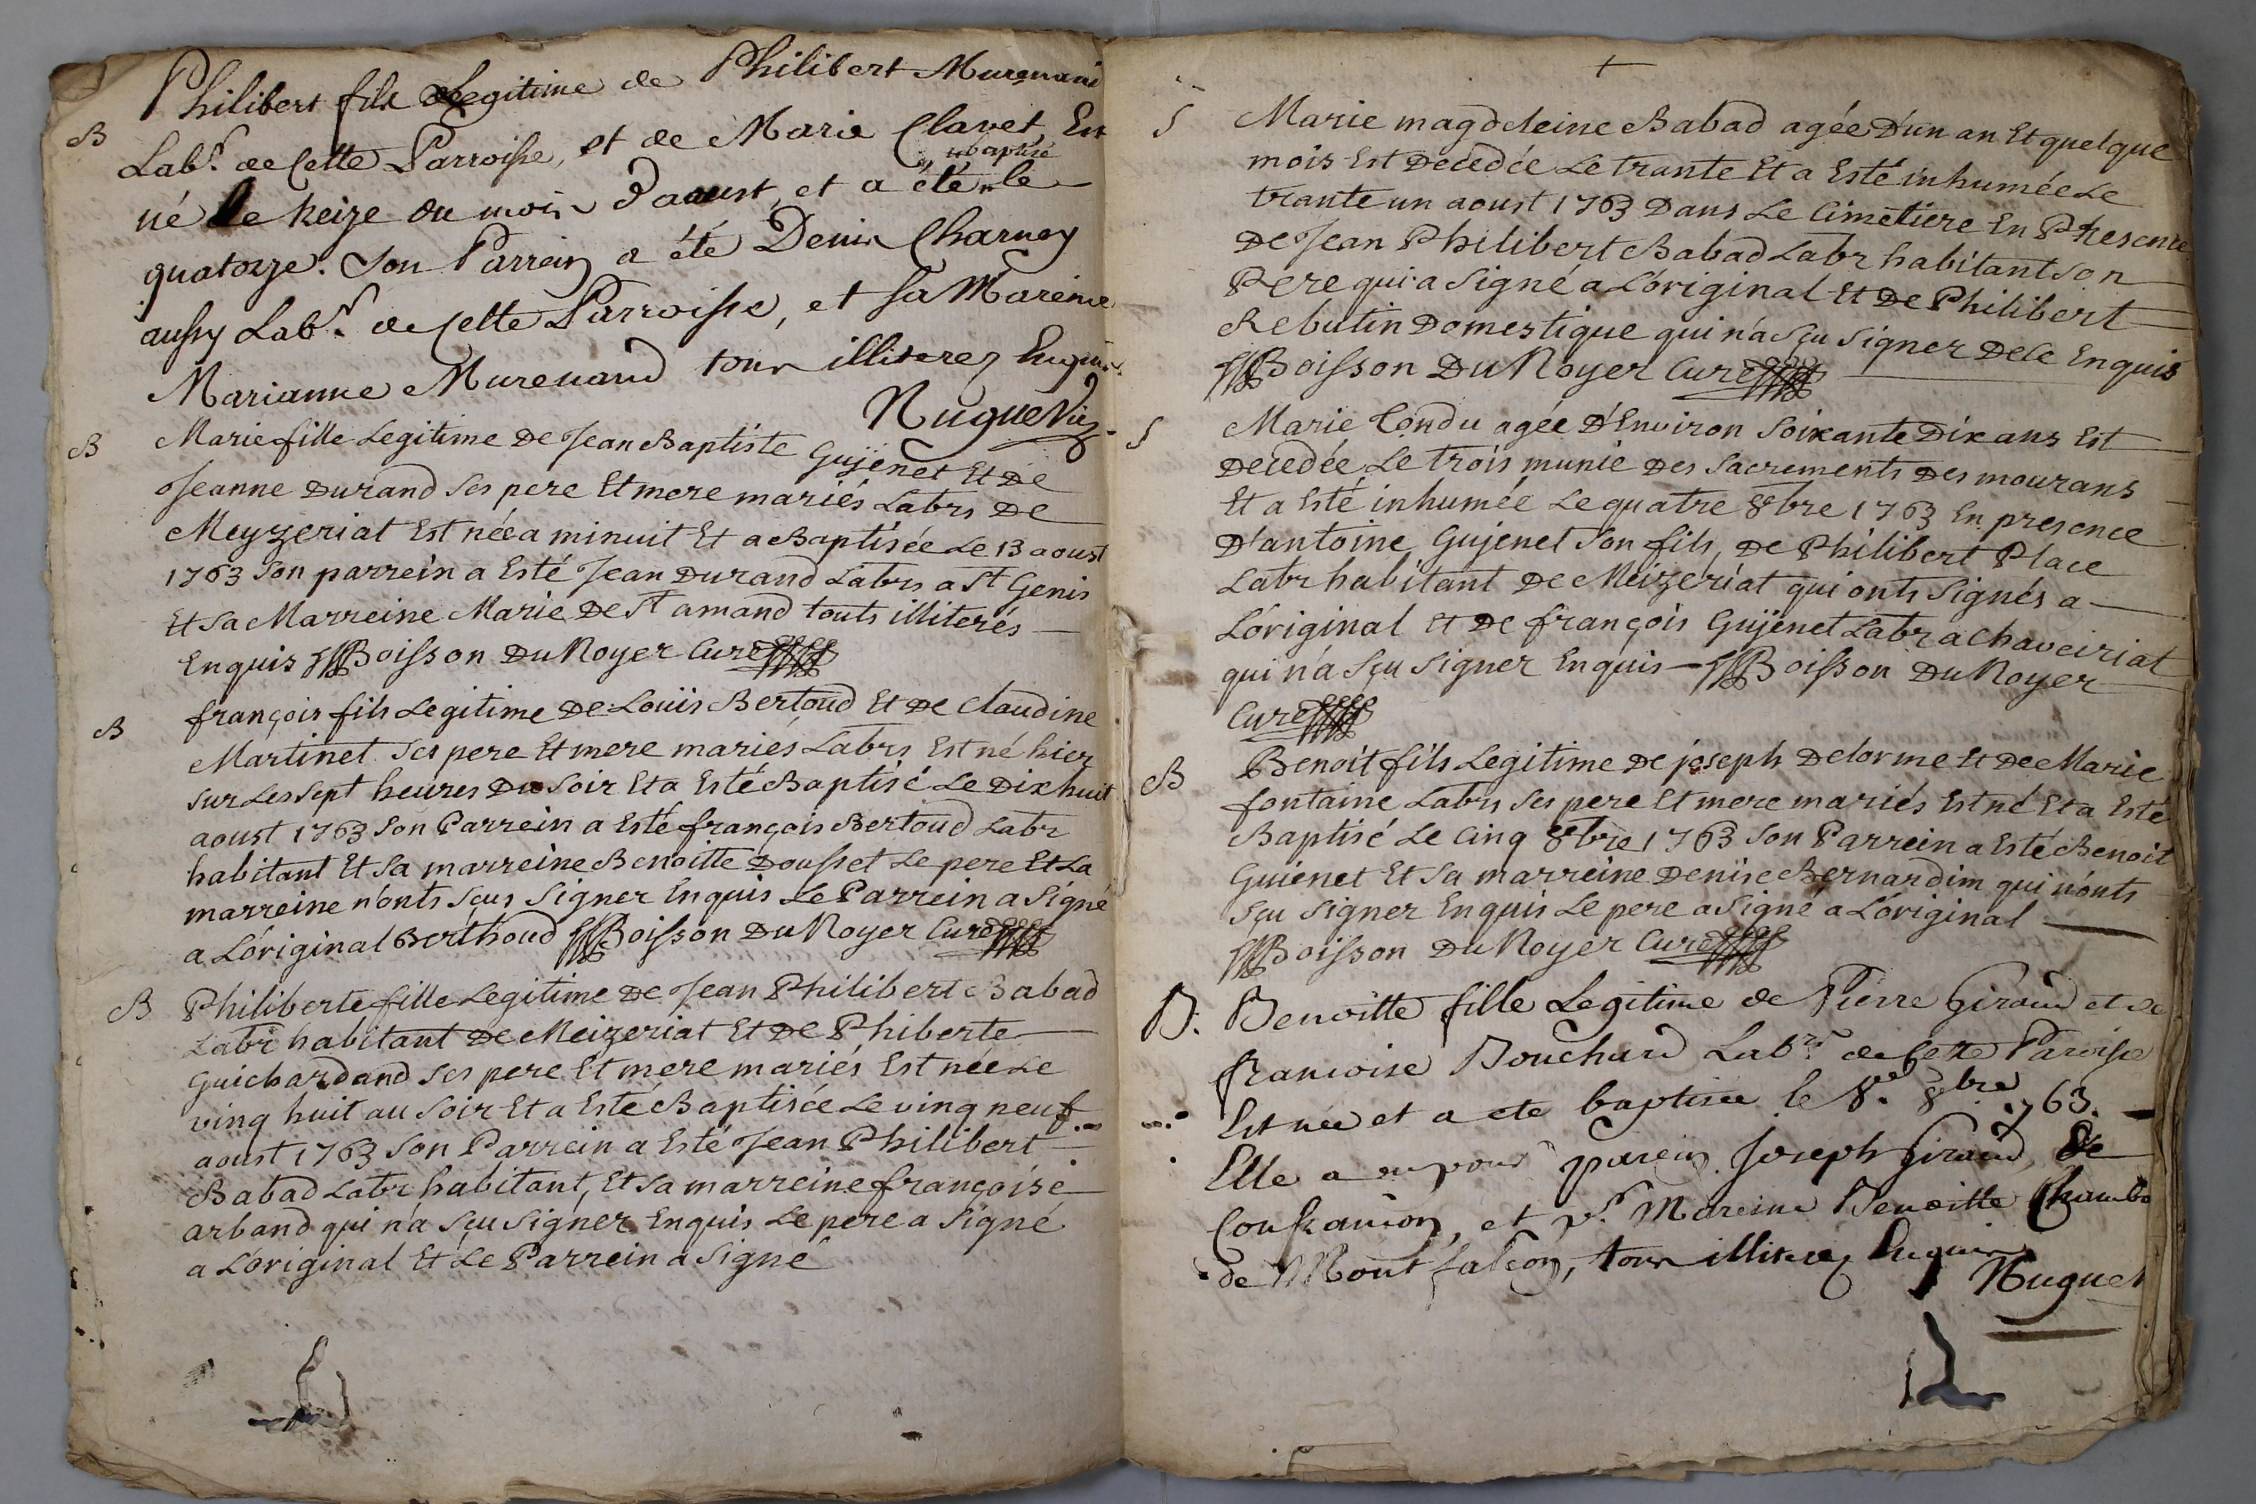 Philibert fils Legitime de Philibert Murenand
B
Labr. de Cette Parroisse, et de Marie Clavet, Est
baptisé
né le treize du mois d'aoust, et a été le
quatorze. Son Parrein a été Denis Charnay
aussy Labr. de Cette Parroisse, et sa Mareine
Marianne Murenand tous illiterez Enquis.
Nugue Vic.
B
Marie fille Legitime De Jean Baptiste Gujenet Et De
Jeanne Durand Ses pere Et mere mariés Labrs De
Meyzeriat Est née a minuit Et a Baptisée Le 13 aoust
1763 Son parrein a Esté Jean Durand Labrs a St Genis
Et Sa Marreine Marie De St amand touts illiterés
Enquis Boisson Du Noyer Curé
B
françois fils Legitime De Loüis Bertoud Et De Claudine
Martinet Ses pere Et mere mariés Labrs Est né hier
Sur Les Sept heures Du Soir Et a Esté Baptisé Le Dix huit
aoust 1763 Son Parrein a Esté françois Bertoud Labr
habitant Et Sa marreine Benoitte Dousset Le pere Et La
marreine n'onts Sçus Signer Enquis Le Parrein a Signé
a L'original Berthoud Boisson Du Noyer Curé
B
Philiberte fille Legitime De Jean Philibert Babad
Labr habitant De Meizeriat Et De Phiberte
Guichardand Ses pere Et mere mariés Est née Le
ving huit au Soir Et a Esté Baptisée Le ving neuf
aoust 1763 Son Parrein a Esté Jean Philibert
Babad Labr habitant, Et Sa marreine françoise
arband qui n'a Sçu Signer Enquis Le pere a Signé
a L'original Et Le Parrein a Signé
S
Marie magdeleine Babad agée D'un an Et quelque
mois Est Decedée Le trante Et a Esté inhumée Le
trante un aoust 1763 Dans Le Cimetiere En Presence
De Jean Philibert Babad Labr habitant Son
Pere qui a Signé a L'original Et De Philibert
Rebutin Domestique qui n'a Sçu Signer De Ce Enquis
Boisson Du Noyer Curé
S
Marie Condu agée D'Environ Soixante Dix ans Est
Decedée Le trois munie Des Sacrements Des mourans
Et a Esté inhumée Le quatre 8bre 1763 En presence
D'antoine Gujenet Son fils, De Philibert Place
Labr habitant De Meizeriat qui onts Signés a
L'original Et De françois Gujenet Labr a Chaveiriat
qui n'a Sçu Signer Enquis Boisson Du Noyer
Curé
B
Benoit fils Legitime De joseph Delorme Et De Marie
fontaine Labrs Ses pere Et mere mariés Est né Et a Esté
Baptisé Le Cinq 8bre 1763 Son Parrein a Esté Benoit
Guienet Et Sa marreine Denise Bernardim qui n'onts
Sçu Signer Enquis Le pere a Signé a L'original
Boisson Du Noyer Curé
B.
Benoitte fille Legitime de Pierre Giraud et de
francoise Bouchard Labrs de Cette Paroisse
Est née et a ete baptisée le 8e 8bre 1763.
Elle a eu pour parein Joseph Giraud de
Confrancon, et pr. Mareine Benoitte Chambo
de Montfalcon, tous illiterez Enquis
Nugues